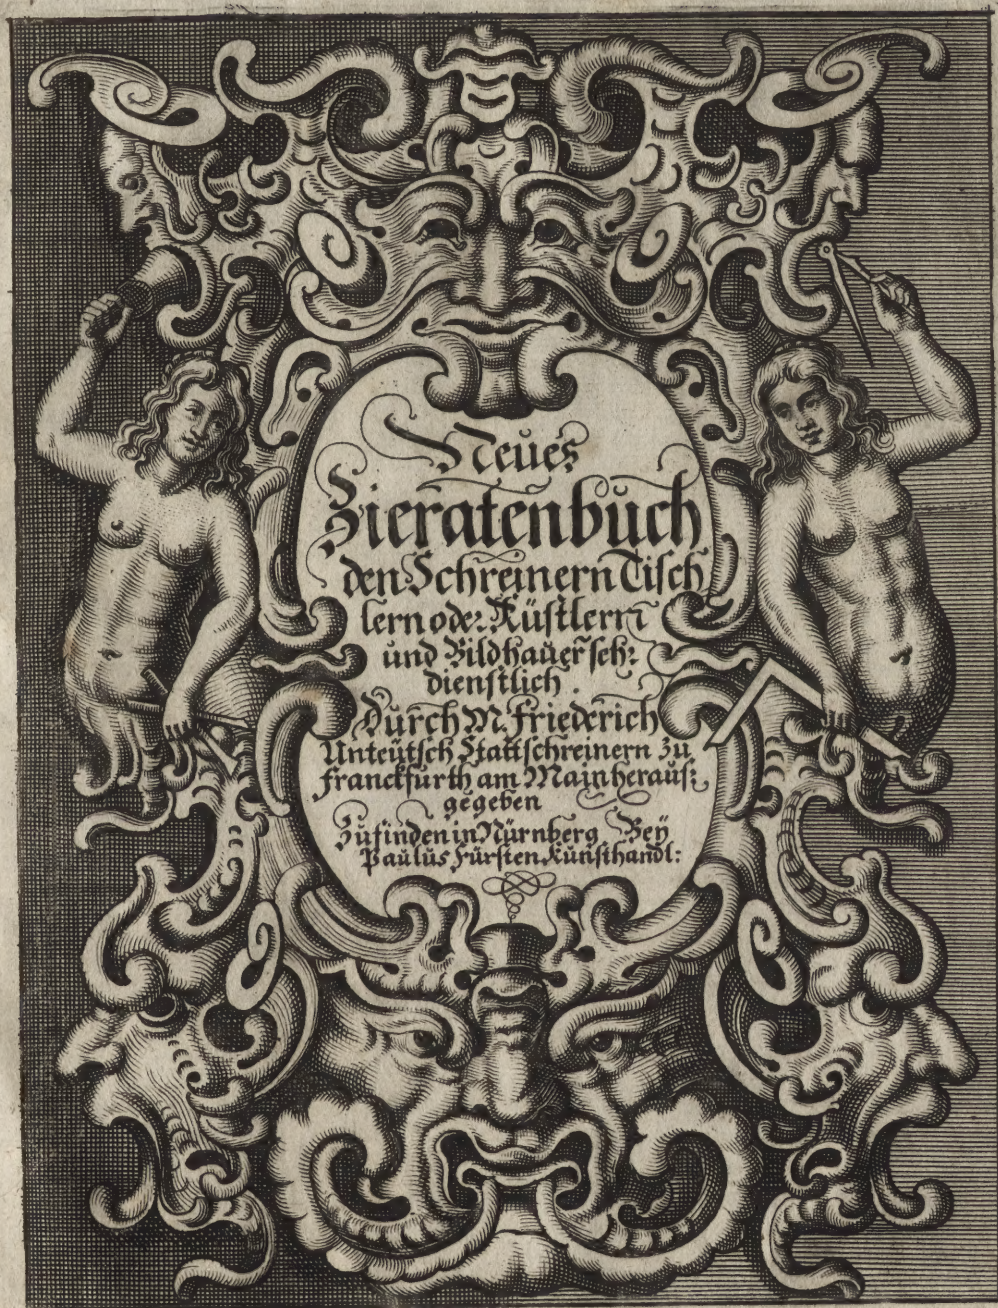 Neües
Zieratenbüch
den Schreinern Tisch
lern oder Küstlern
und Bildhaüer seh:
dienstlich.
Dürch M. Friederich
Unteütsch Stattschreinern zü
Franckfürth am Mayn heraüs:
gegeben
Zufinden in Nürnberg Bey
Paülüs Fürsten Künsthandl: